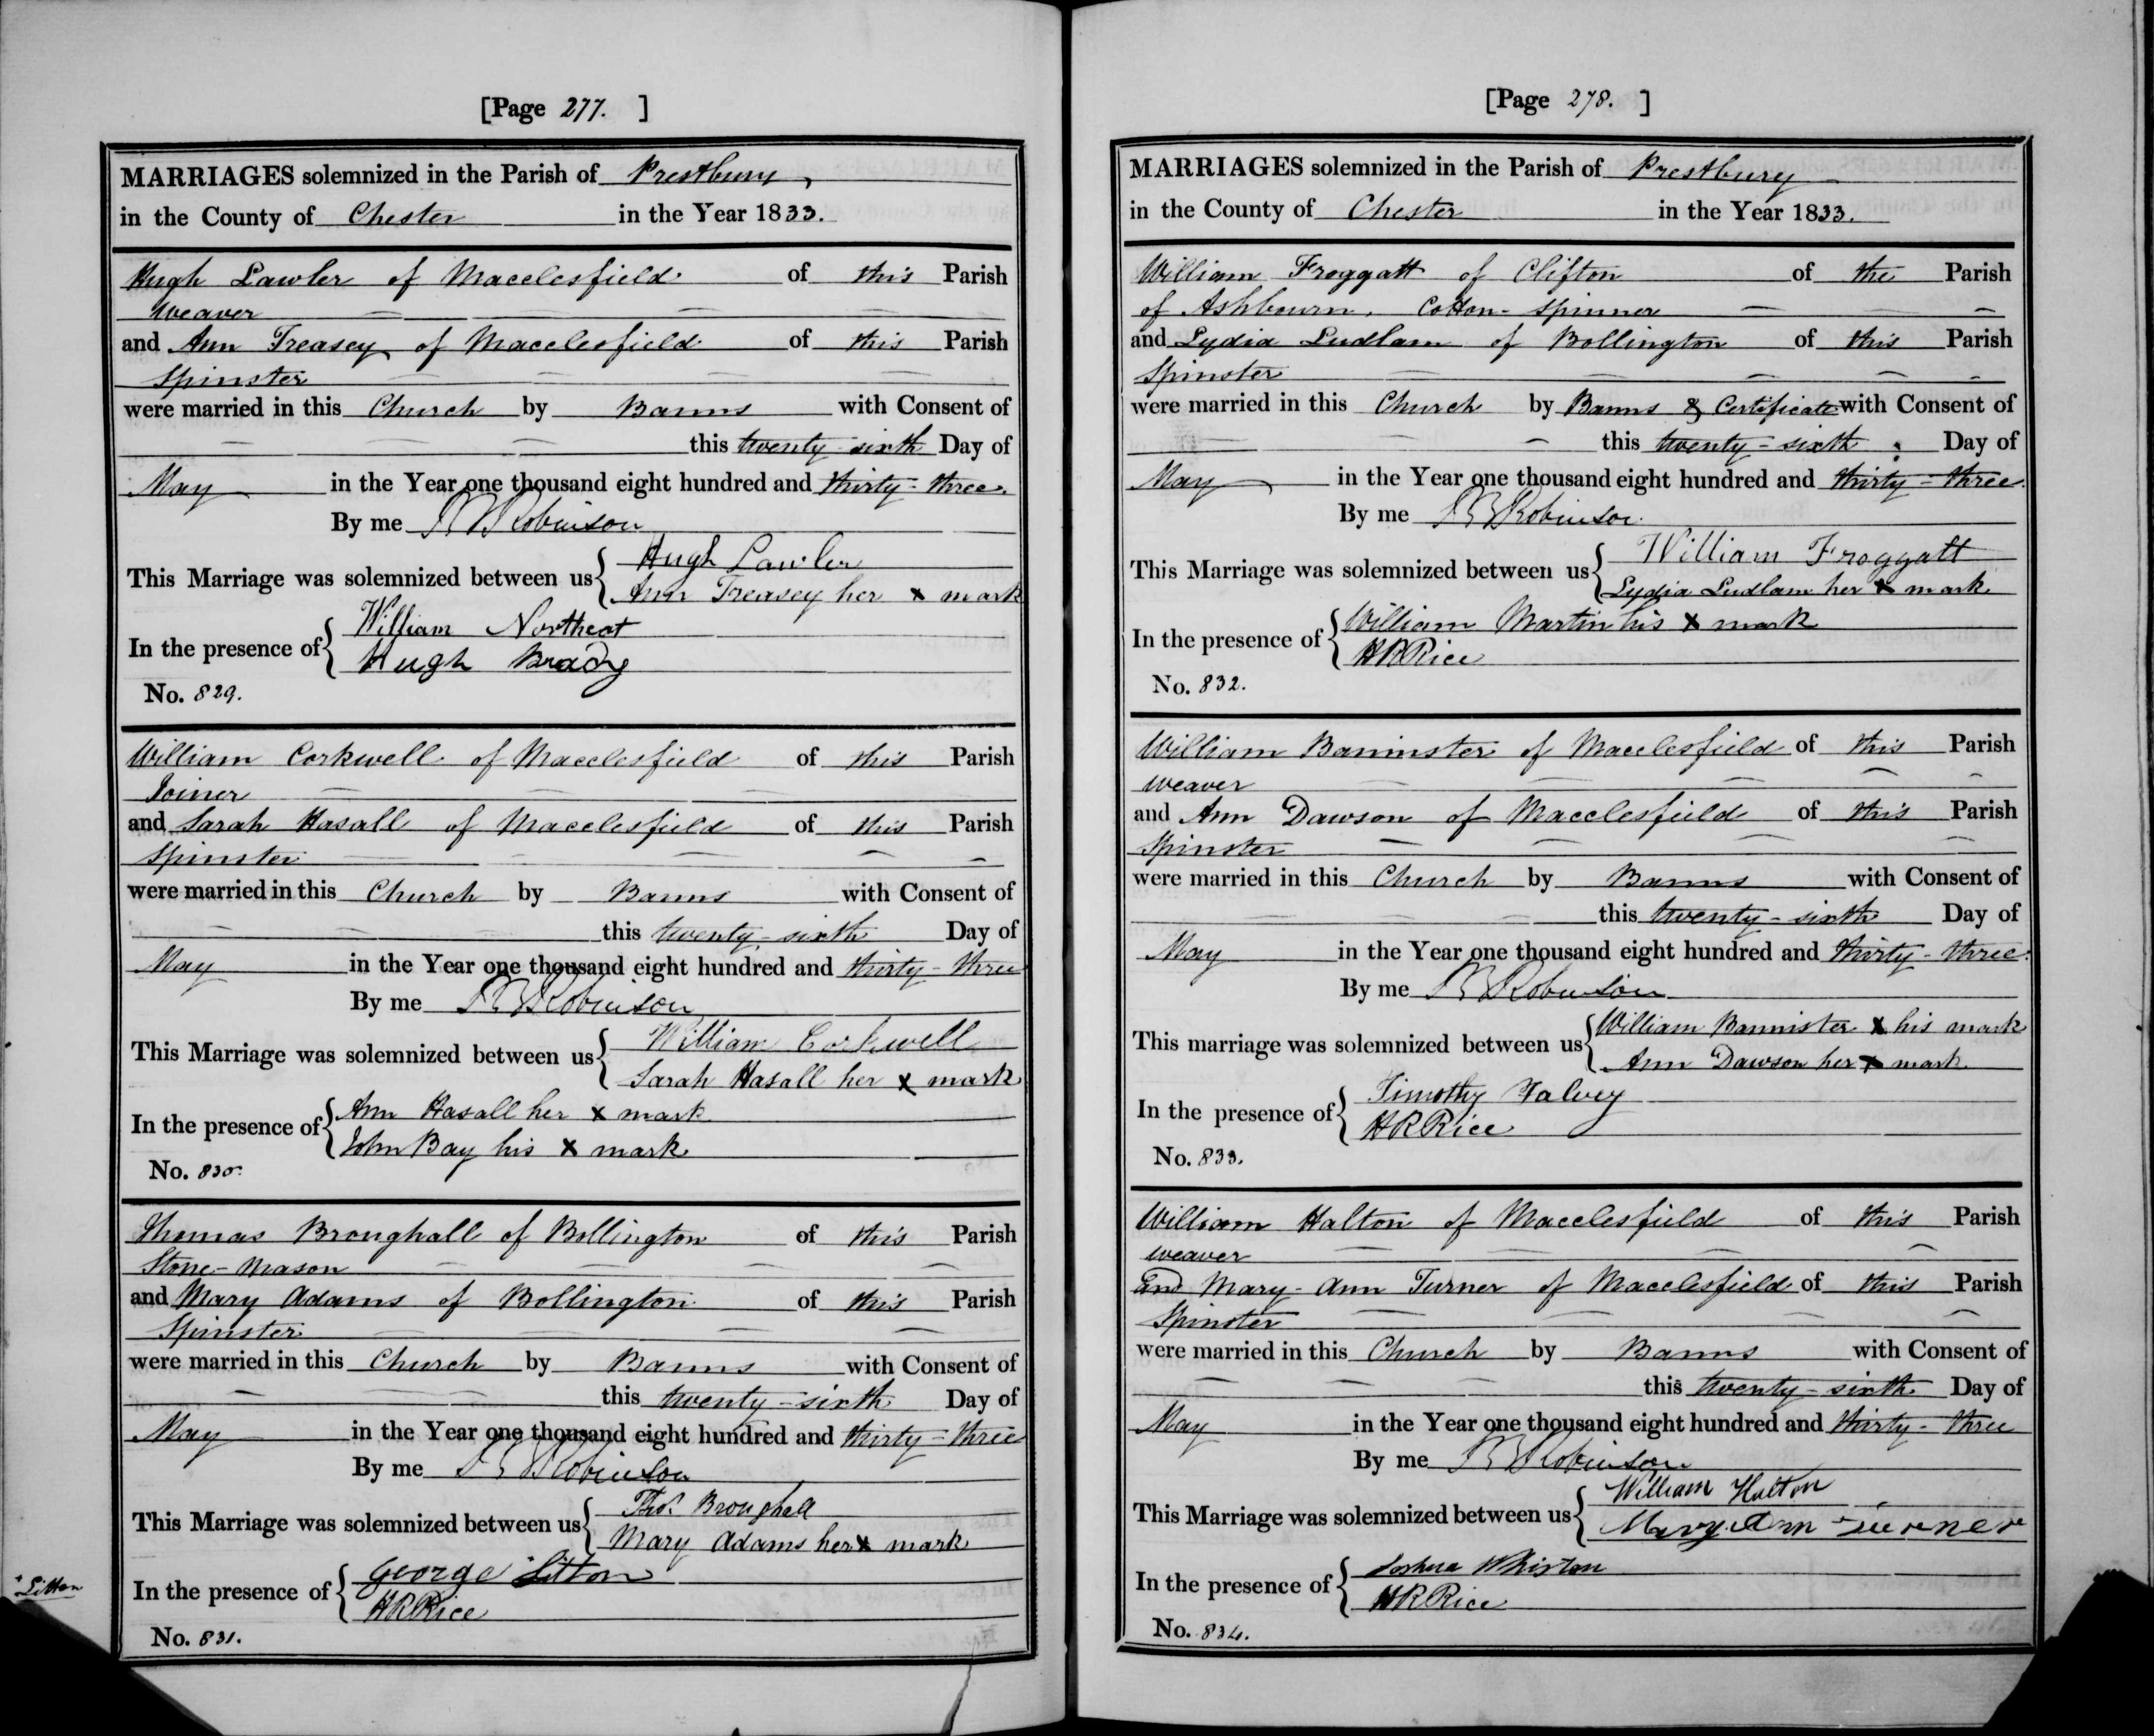 [Page 277. ]
MARRIAGES solemnized in the Parish of Prestbury
in the County of Chester in the Year 1833.
Hugh Lawler of Macclesfield of this Parish
Weaver
and Ann Treasey of Macclesfield of this Parish
Spinster
were married in this Church by Banns with Consent of
this twenty-sixth Day of
May in the Year one thousand eight hundred and thirty-three.
By me Robinson
This Marriage was solemnized between us { Hugh Lawler
Ann Treasey her x mark
In the presence of { William Northcot
Hugh Brady
No. 829.
William Corkwell of Macclesfield of this Parish
Joiner
and Sarah Hasall of Macclesfield of this Parish
Spinster
were married in this Church by Banns with Consent of
this twenty-sixth Day of
May in the Year one thousand eight hundred and thirty-three
By me Robinson
This Marriage was solemnized between us { William Corkwell
Sarah Hasall her x mark
In the presence of { Ann Hasall her x mark
John Bay his x mark
No. 830.
Thomas Broughall of Bollington of this Parish
Stone-Mason
and Mary Adams of Bollington of this Parish
Spinster
were married in this Church by Banns with Consent of
this twenty-sixth Day of
May in the Year one thousand eight hundred and thirty-three
By me Robinson
This Marriage was solemnized between us { Thos. Broughall
Mary Adams her x mark
In the presence of { George Litton
+ Litton
H R Rice
No. 831.
[Page 278. ]
MARRIAGES solemnized in the Parish of Prestbury
in the County of Chester in the Year 1833.
William Froggatt of Clifton of the Parish
of Ashbourn. Cotton-Spinner
and Lydia Ludlam of Bollington of this Parish
Spinster
were married in this Church by Banns & Certificate with Consent of
this twenty-sixth Day of
May in the Year one thousand eight hundred and thirty-three.
By me Robinson
This Marriage was solemnized between us { William Froggatt
Lydia Ludlam her x mark
In the presence of { William Martin his x mark
H R Rice
No. 832.
William Bannister of Macclesfield of this Parish
Weaver
and Ann Dawson of Macclesfield of this Parish
Spinster
were married in this Church by Banns with Consent of
this twenty-sixth Day of
May in the Year one thousand eight hundred and thirty-three.
By me Robinson
This marriage was solemnized between us { William Bannister x his mark
Ann Dawson her x mark
In the presence of { Timothy Falvey
H R Rice
No. 833.
William Halton of Macclesfield of this Parish
Weaver
And Mary-Ann Turner of Macclesfield of this Parish
Spinster
were married in this Church by Banns with Consent of
this twenty-sixth Day of
May in the Year one thousand eight hundred and thirty-three
By me Robinson
This Marriage was solemnized between us { William Halton
Mary Ann Turner
In the presence of { Joshua Whiston
H R Rice
No. 834.